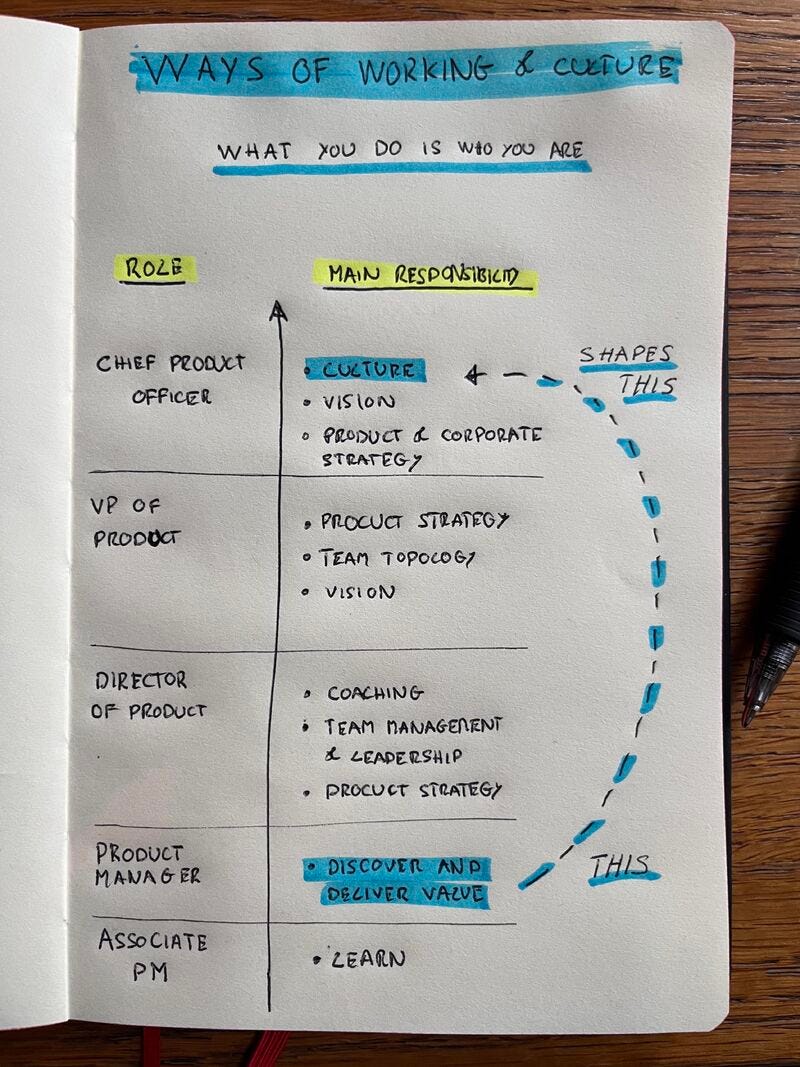 WAYS OF WORKING & CULTURE
WHAT YOU DO IS WHO YOU ARE
ROLE
MAIN RESPONSIBILITY
CHIEF PRODUCT
OFFICER
• CULTURE
• VISION
• PRODUCT & CORPORATE
STRATEGY
SHAPES
THIS
VP OF
PRODUCT
• PRODUCT STRATEGY
• TEAM TOPOLOGY
• VISION
DIRECTOR
OF PRODUCT
• COACHING
• TEAM MANAGEMENT
& LEADERSHIP
• PRODUCT STRATEGY
PRODUCT
MANAGER
• DISCOVER AND
DELIVER VALUE
THIS
ASSOCIATE
PM
• LEARN